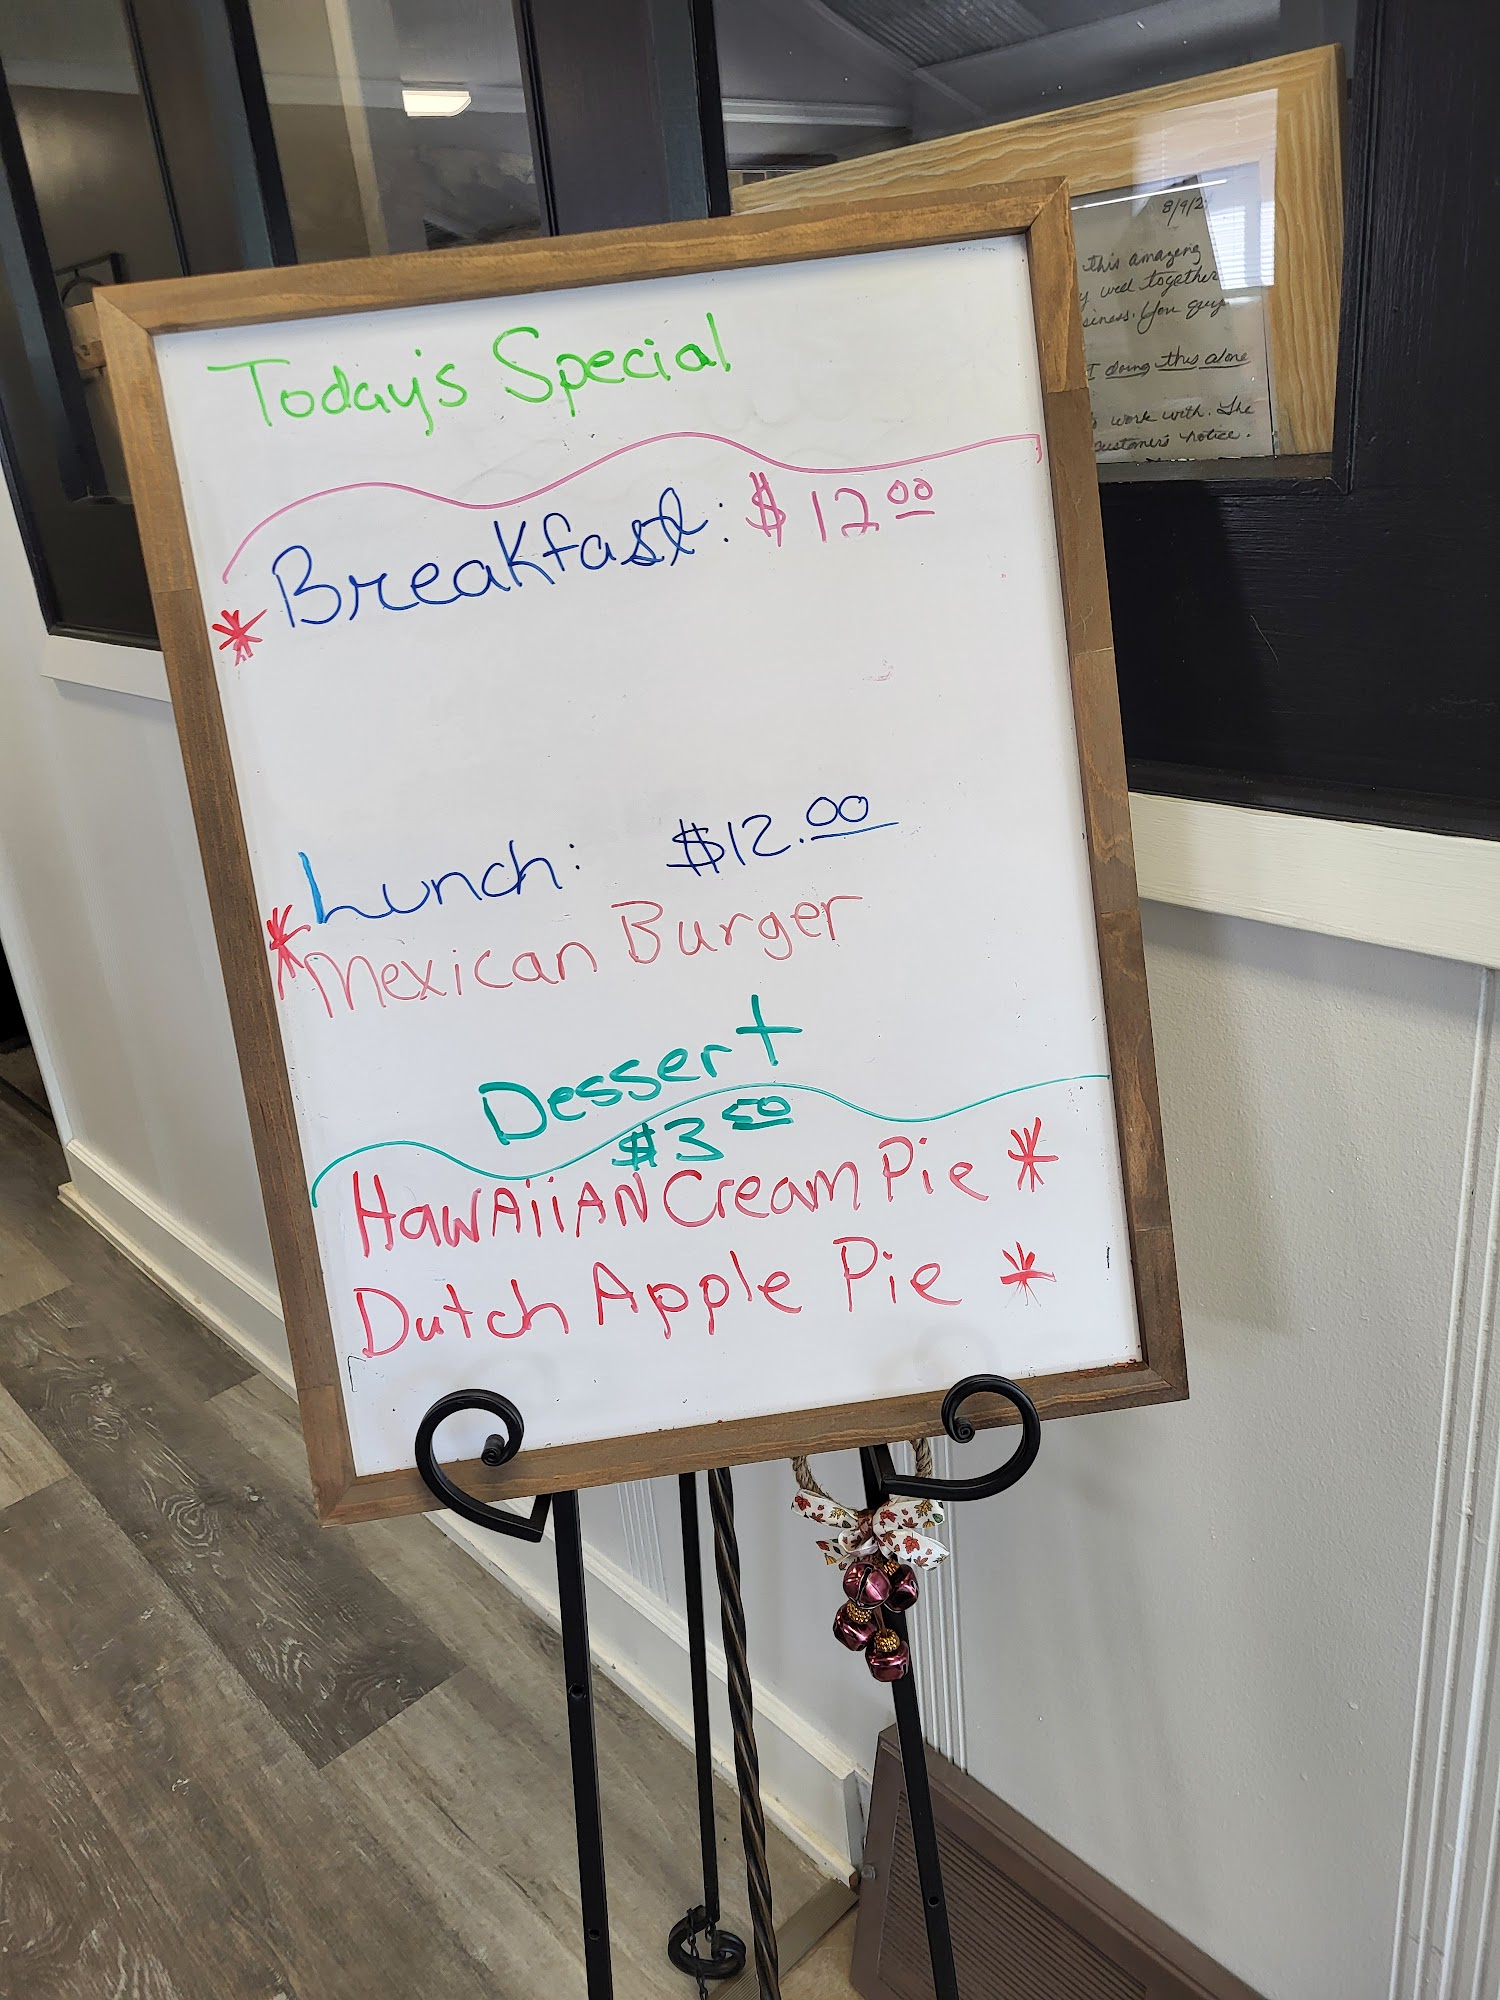 Today's Special
Breakfast: $12.00
*
Lunch: $12.00
* Mexican Burger
Dessert
$3.50
HAWAiiAN Cream Pie *
Dutch Apple Pie *
8/9/2
this amazing
y well together
siness. You guys
I doing this alone
work with. The
customers notice.